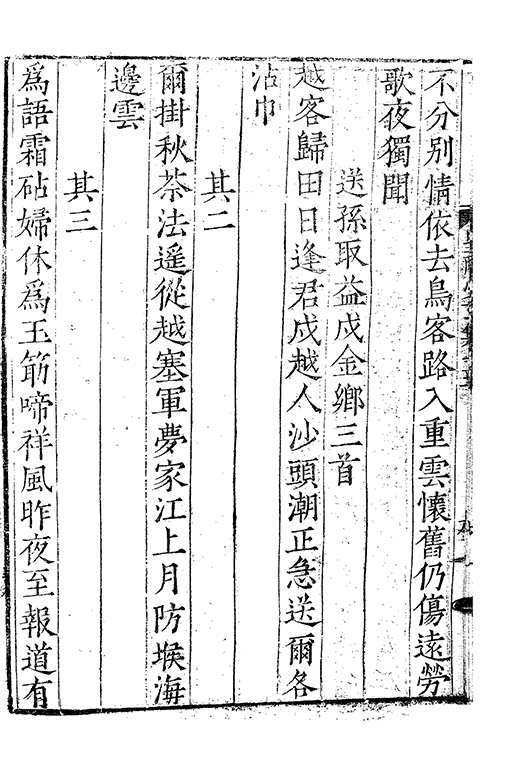 不分別情依去鳥客路入重雲懷舊仍傷遠勞
歌夜獨聞
送孫取益戍金鄉三首
越客歸田日逢君戍越人沙頭潮正急送爾各
沾巾
其二
爾掛秋荼法遥從越塞軍夢家江上月防堠海
邊雲
其三
爲語霜砧婦休爲玉筯啼祥風昨夜至報道有